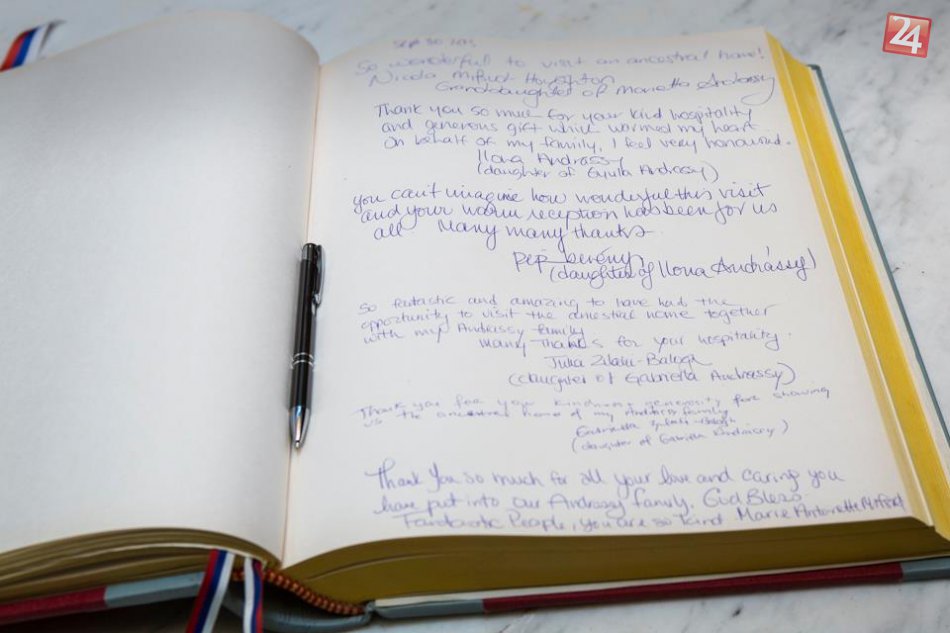 24
Sept 30
So wonderful to visit an ancestral home!
Nicola
Granddaughter of Marietta Andrassy
Thank you so much for your kind hospitality
and generous gift which warmed my heart.
On behalf of my family, I feel very honoured.
Ilona Andrassy
(daughter of Gyula Andrassy)
you can't imagine how wonderful this visit
and your warm reception has been for us
all Many many thanks.
(daughter of Ilona Andrássy)
So fantastic and amazing to have had the
opportunity to visit the ancestral home together
with my Andrassy family
Many Thanks for your hospitality.
Julia Zilahi-Balogh
(daughter of Gabriella Andrassy)
Thank you for your kindness generosity for showing
us the ancestral home of my Andrassy family
(daughter of Gabriella Andrássy)
Thank You so much for all your love and caring you
have put into our Andrassy family. God Bless
Fantastic People, you are so kind Marie Antoinette